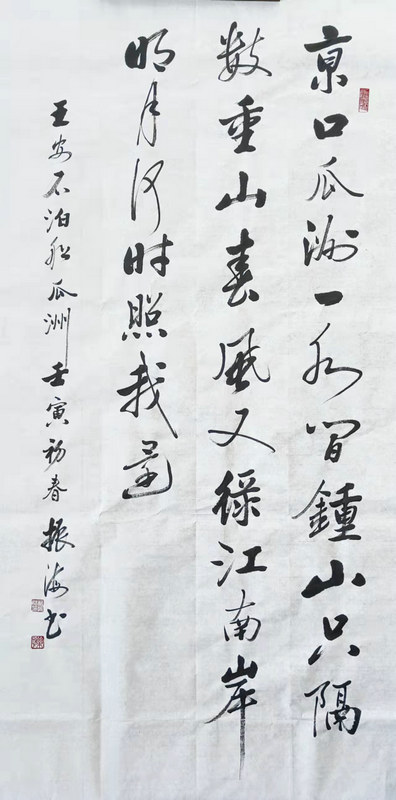 京口瓜洲一水间鍾山只隔
数重山春风又绿江南岸
明月何时照我還
王安石泊船瓜洲 壬寅初春 振海书